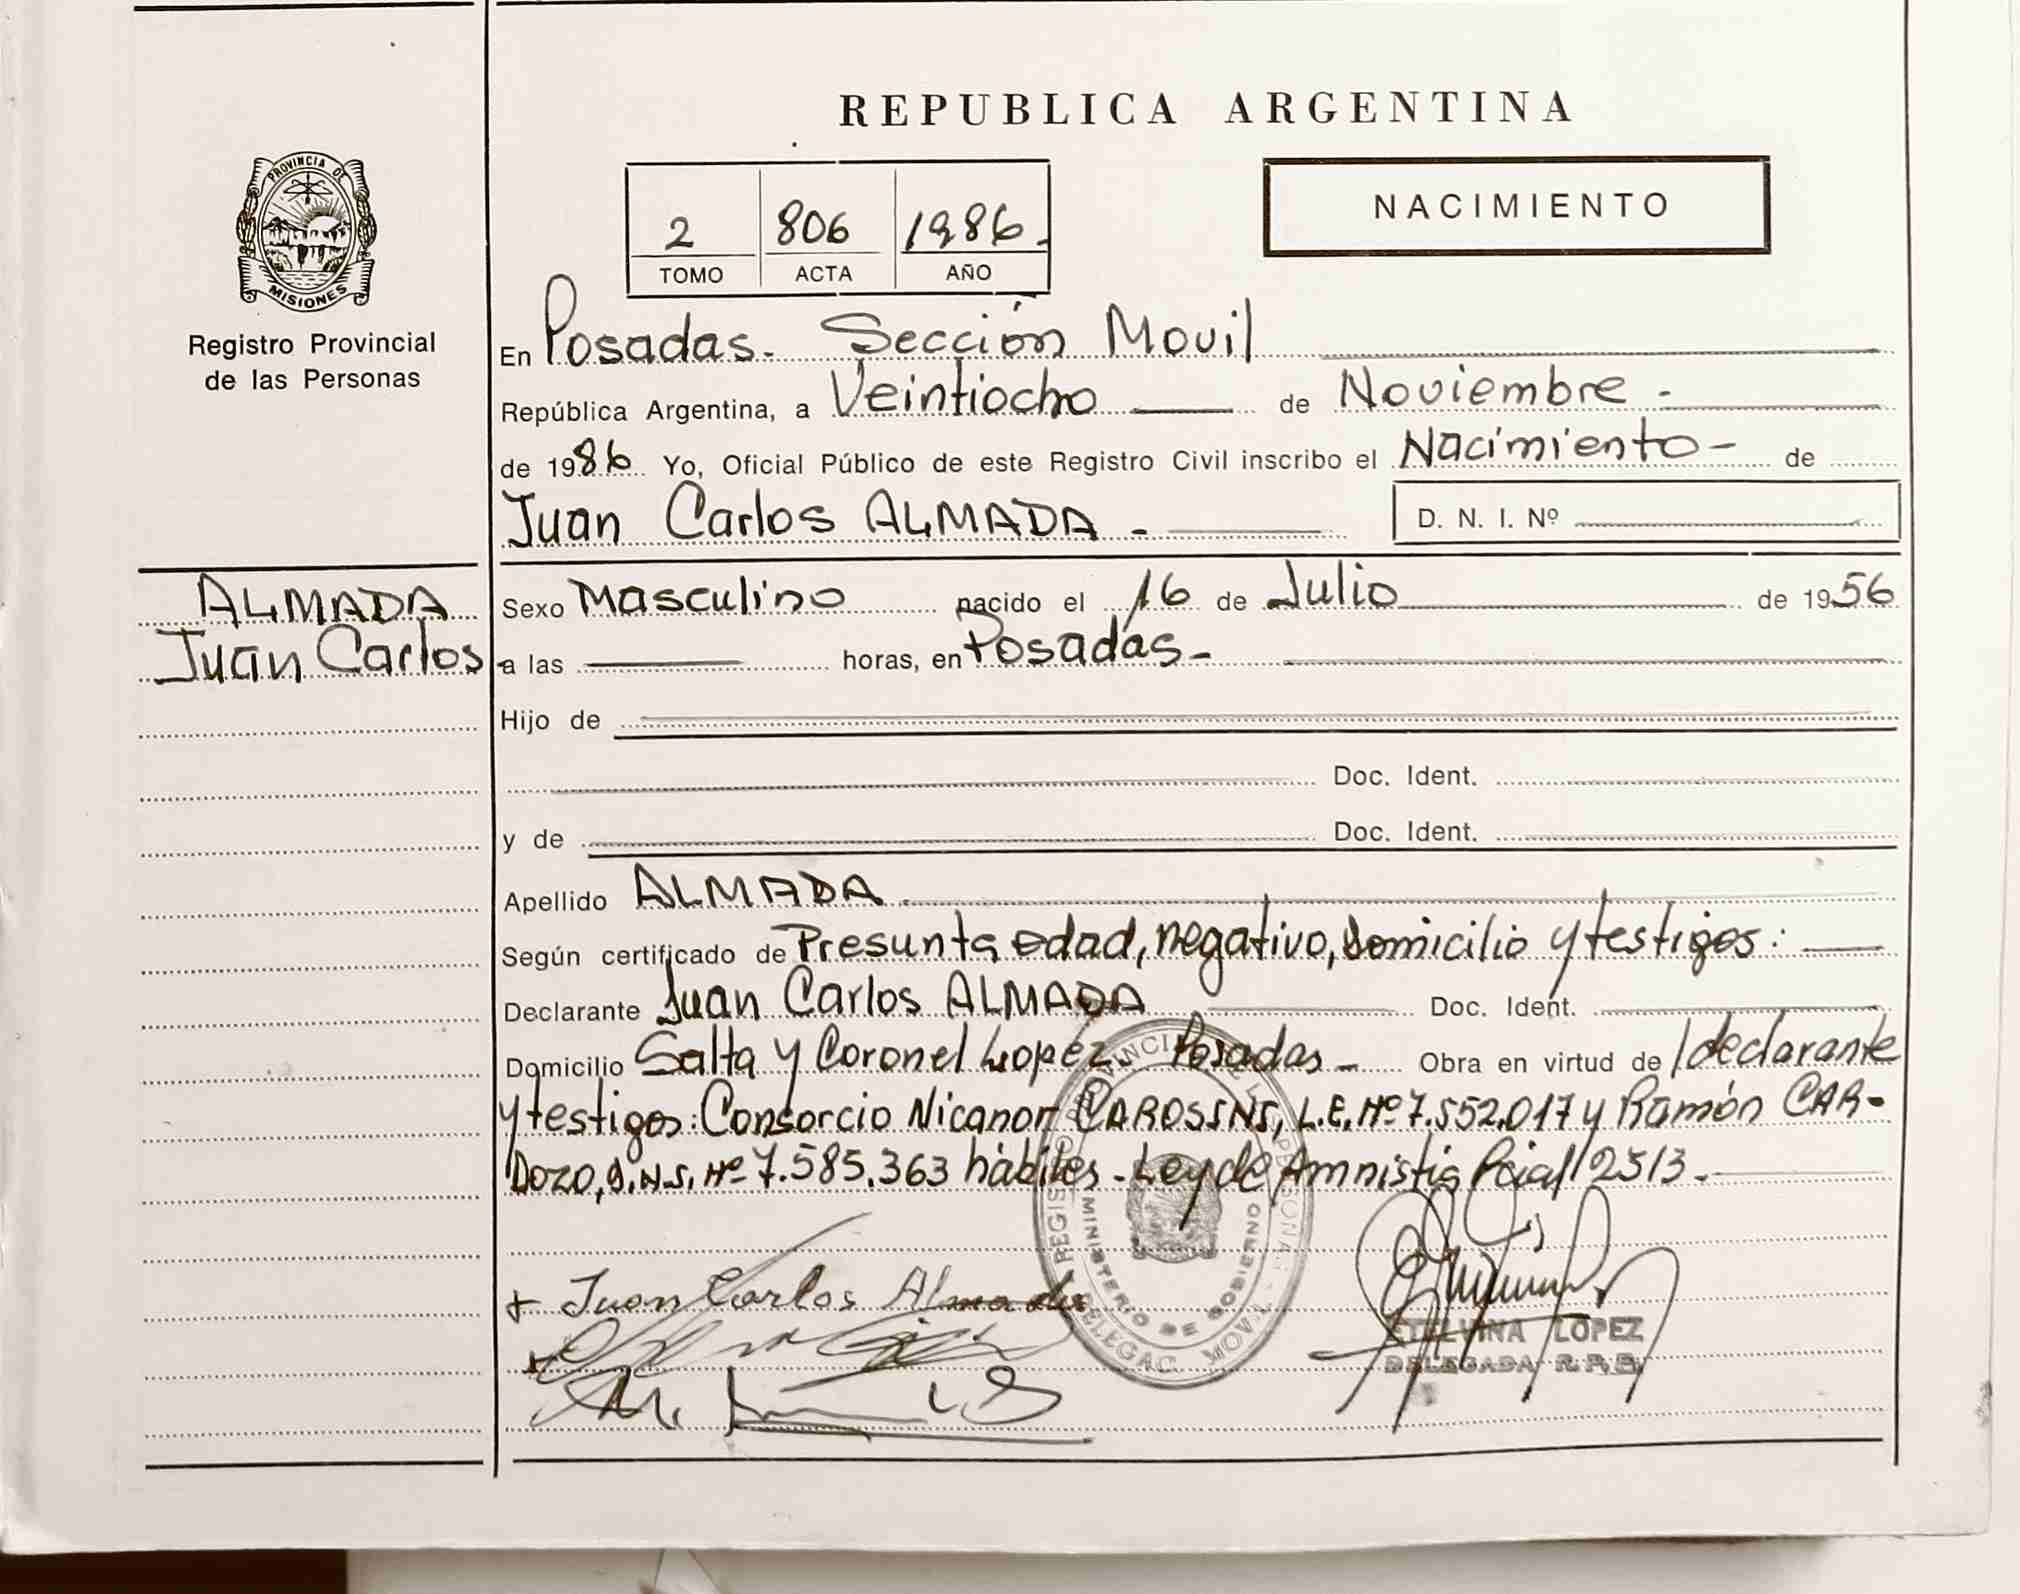 REPUBLICA ARGENTINA
PROVINCIA DE
MISIONES
Registro Provincial
de las Personas
2 806 1986.
TOMO ACTA AÑO
NACIMIENTO
En Posadas. Sección Movil
República Argentina, a Veintiocho de Noviembre -
de 1986 Yo, Oficial Público de este Registro Civil inscribo el Nacimiento - de
Juan Carlos ALMADA - D. N. I. Nº
ALMADA
Juan Carlos
Sexo Masculino nacido el 16 de Julio de 1956
a las horas, en Posadas -
Hijo de
Doc. Ident.
y de Doc. Ident.
Apellido ALMADA
Según certificado de Presunta edad, negativo, domicilio y testigos:
Declarante Juan Carlos ALMADA Doc. Ident.
Domicilio Salta y Coronel Lopez. Posadas - Obra en virtud de /declarante
y testigos: Consorcio Nicanor L.E. Nº 7.552.017 y Ramón CAR-
DOZO, D.N.I. Nº 7.585.363 hábiles - Ley de Amnistia Pcial 2513 -
Juan Carlos Almada
MINISTERIO DE GOBIERNO
ETELVINA LOPEZ
DELEGADA R. P. P.